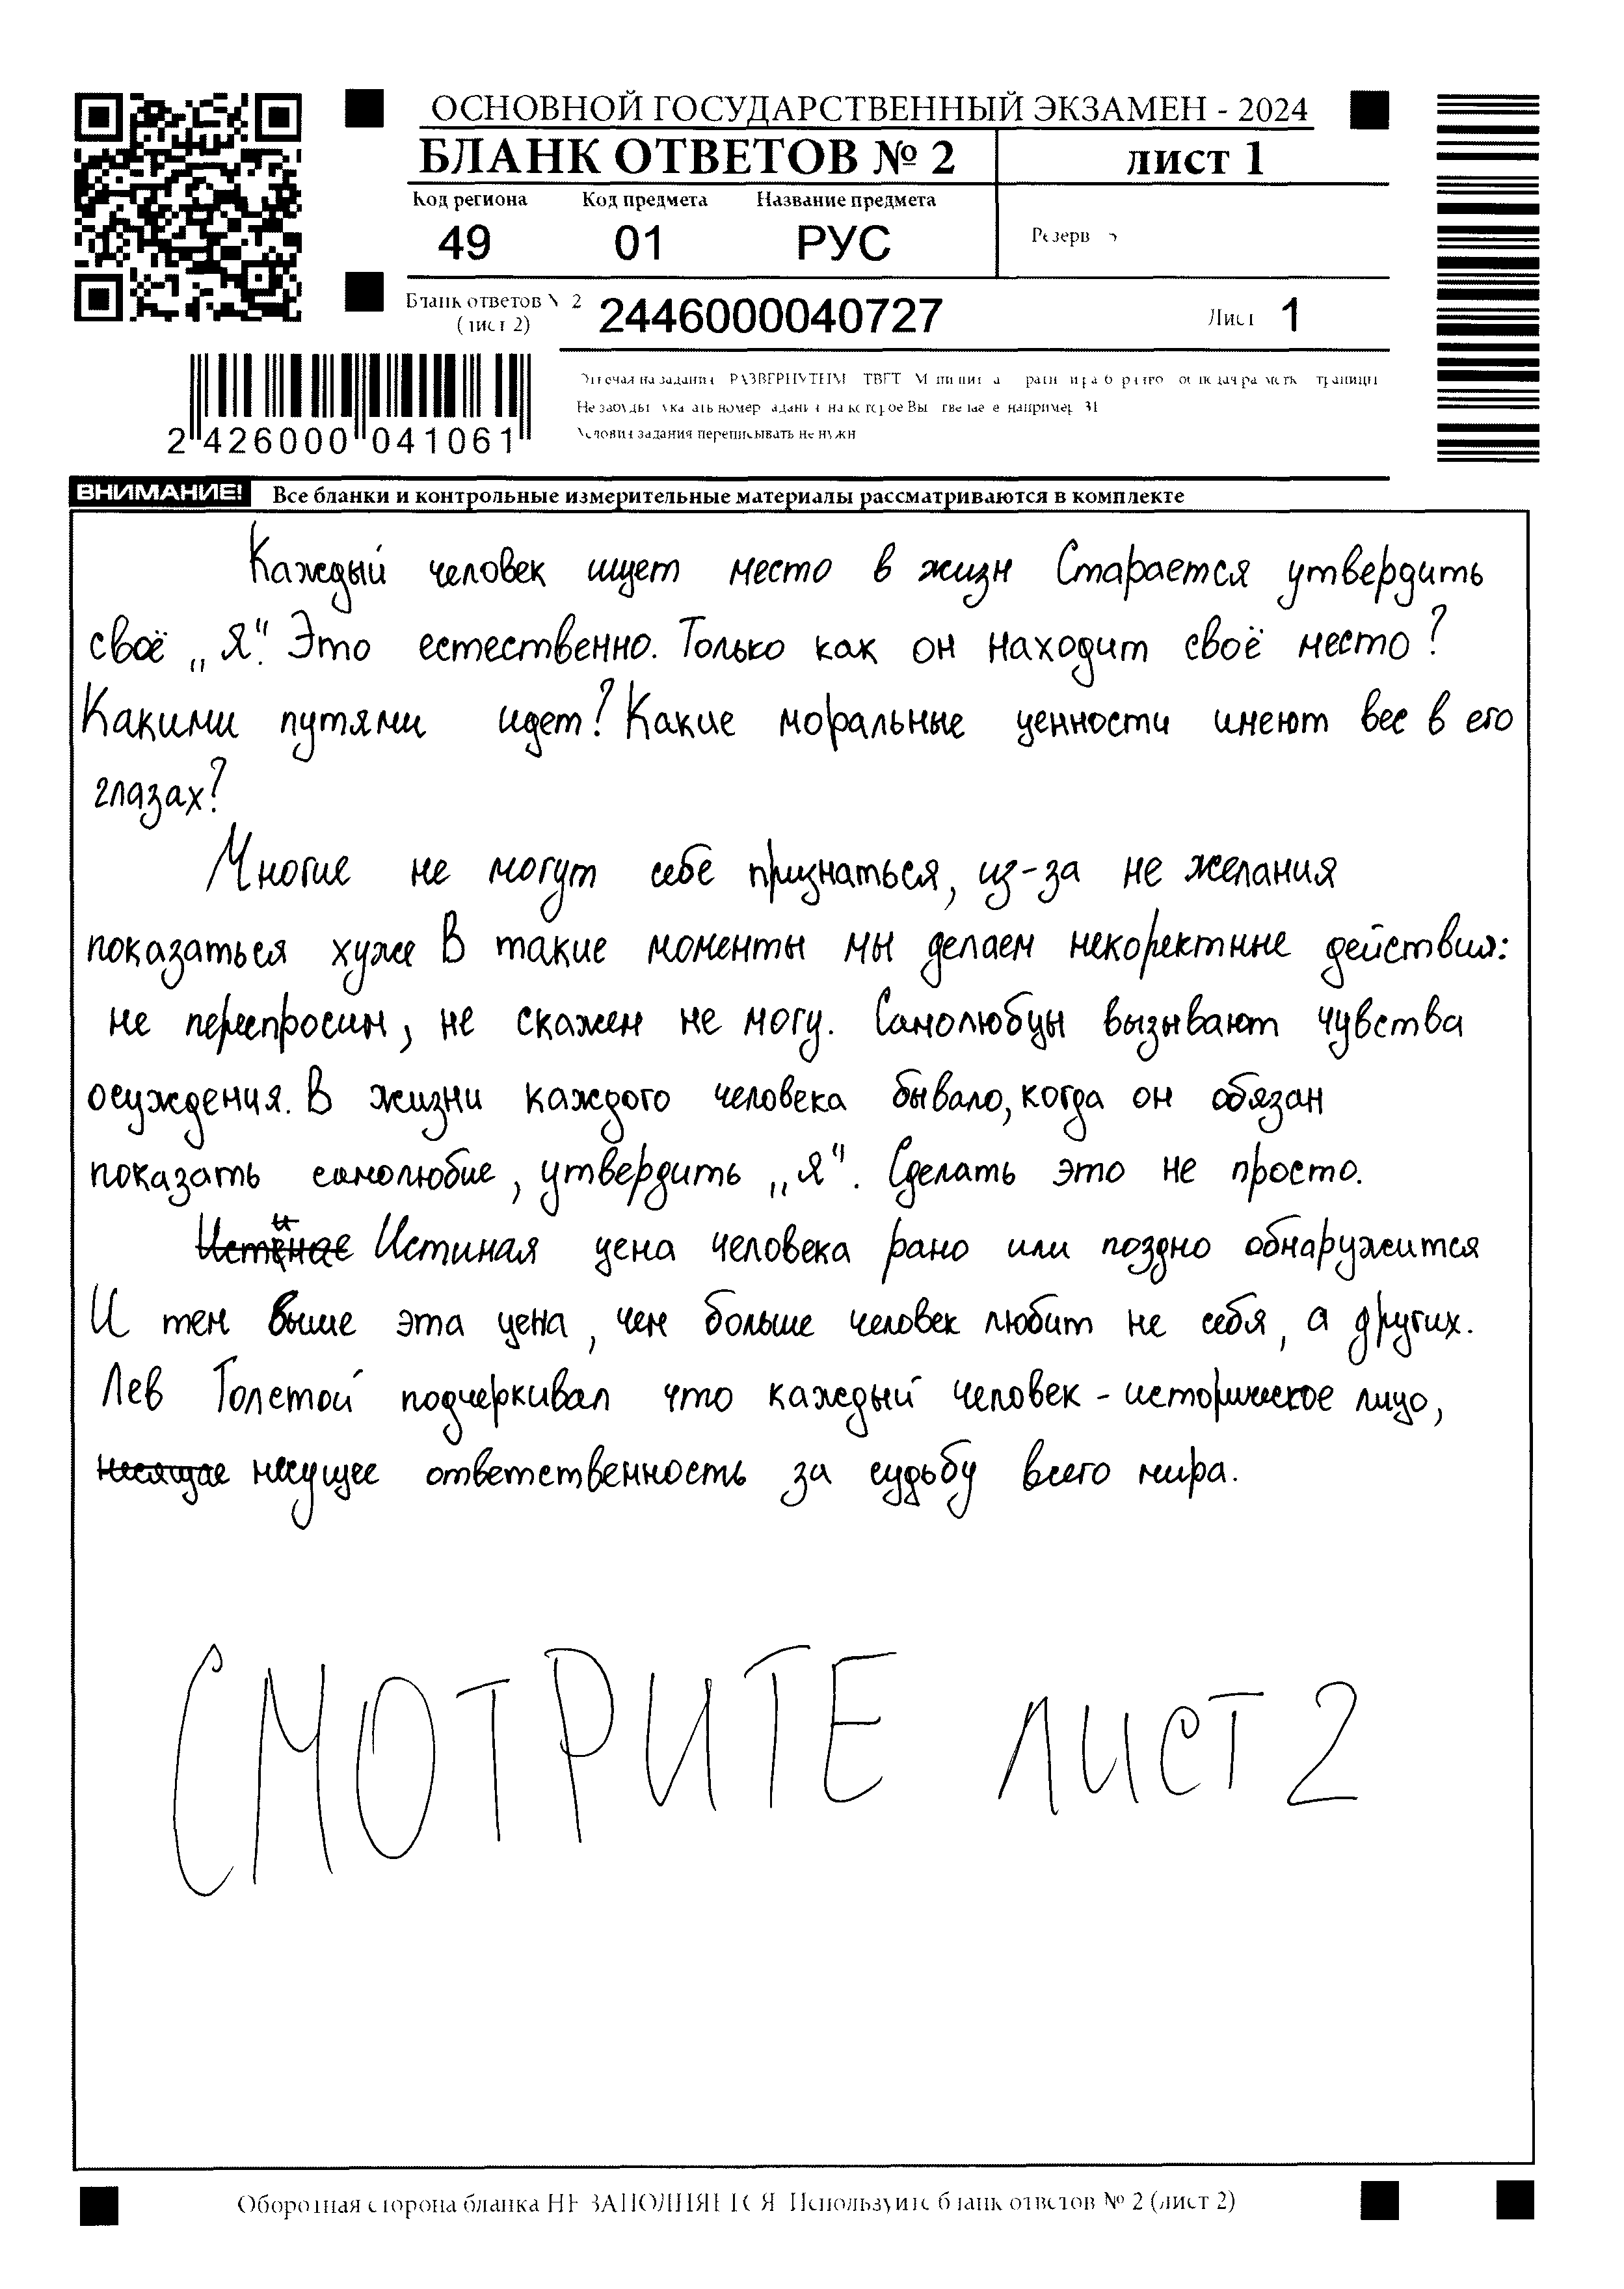 ОСНОВНОЙ ГОСУДАРСТВЕННЫЙ ЭКЗАМЕН - 2024
БЛАНК ОТВЕТОВ № 2
лист 1
Код региона Код предмета Название предмета
49 01 РУС
Резерв
Бланк ответов № 2
(лист 2)
2446000040727
Лист 1
2 426000 041061
Условия задания переписывать не нужн
ВНИМАНИЕ! Все бланки и контрольные измерительные материалы рассматриваются в комплекте
Каждый человек ищет место в жизн Старается утвердить
своё „Я“. Это естественно. Только как он находит своё место?
Какими путями идет? Какие моральные ценности имеют вес в его
глазах?
Многие не могут себе признаться, из-за не желания
показаться хуже В такие моменты мы делаем некоректные действия:
не переспросим, не скажем не могу. Самолюбцы вызывают чувства
осуждения. В жизни каждого человека бывало, когда он обязан
показать самолюбие, утвердить „Я“. Сделать это не просто.
Истиная цена человека рано или поздно обнаружится
И тем выше эта цена, чем больше человек любит не себя, а других.
Лев Толстой подчеркивал что каждый человек - историческое лицо,
несущее ответственность за судьбу всего мира.
СМОТРИТЕ лист 2
Оборотная сторона бланка НЕ ЗАПОЛНЯЕТСЯ Используйте бланк ответов № 2 (лист 2)